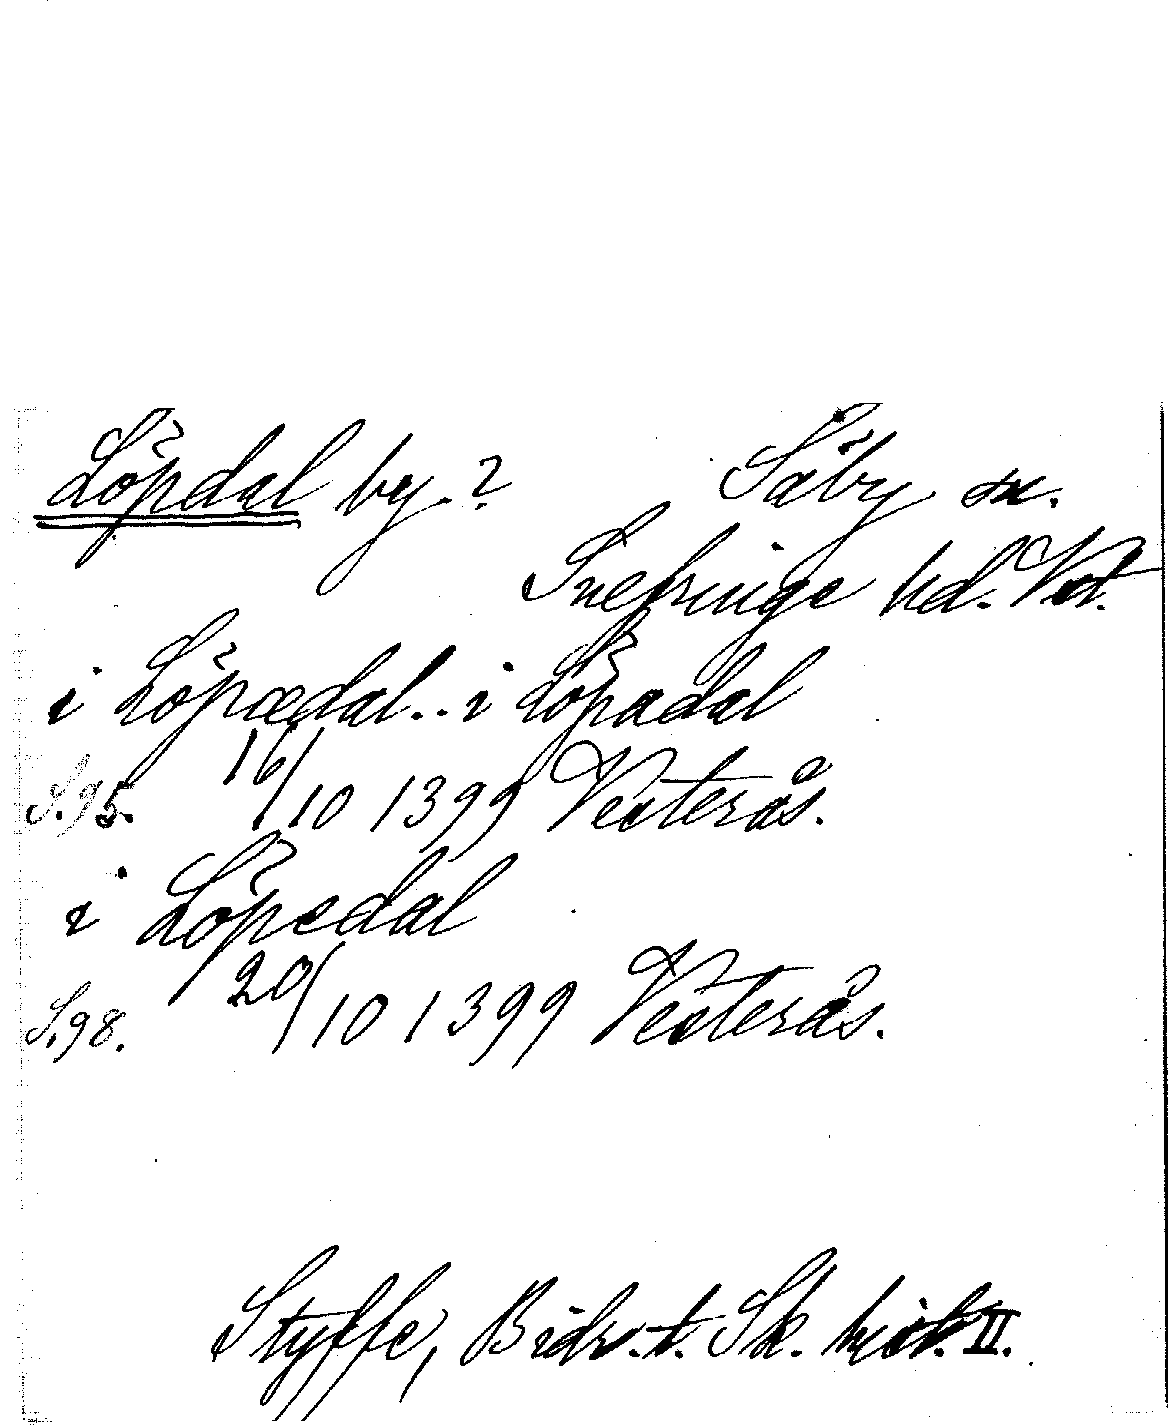 Löpdal by.? Säby sn.
Snefringe hd. Vstm.
i Löpædal.. i Löpadal
S.95. 16/10 1399 Vesterås.
i Löpedal
S.98. 20/10 1399 Vesterås.
Styffe, Bidr. t. Sk. hist. II.